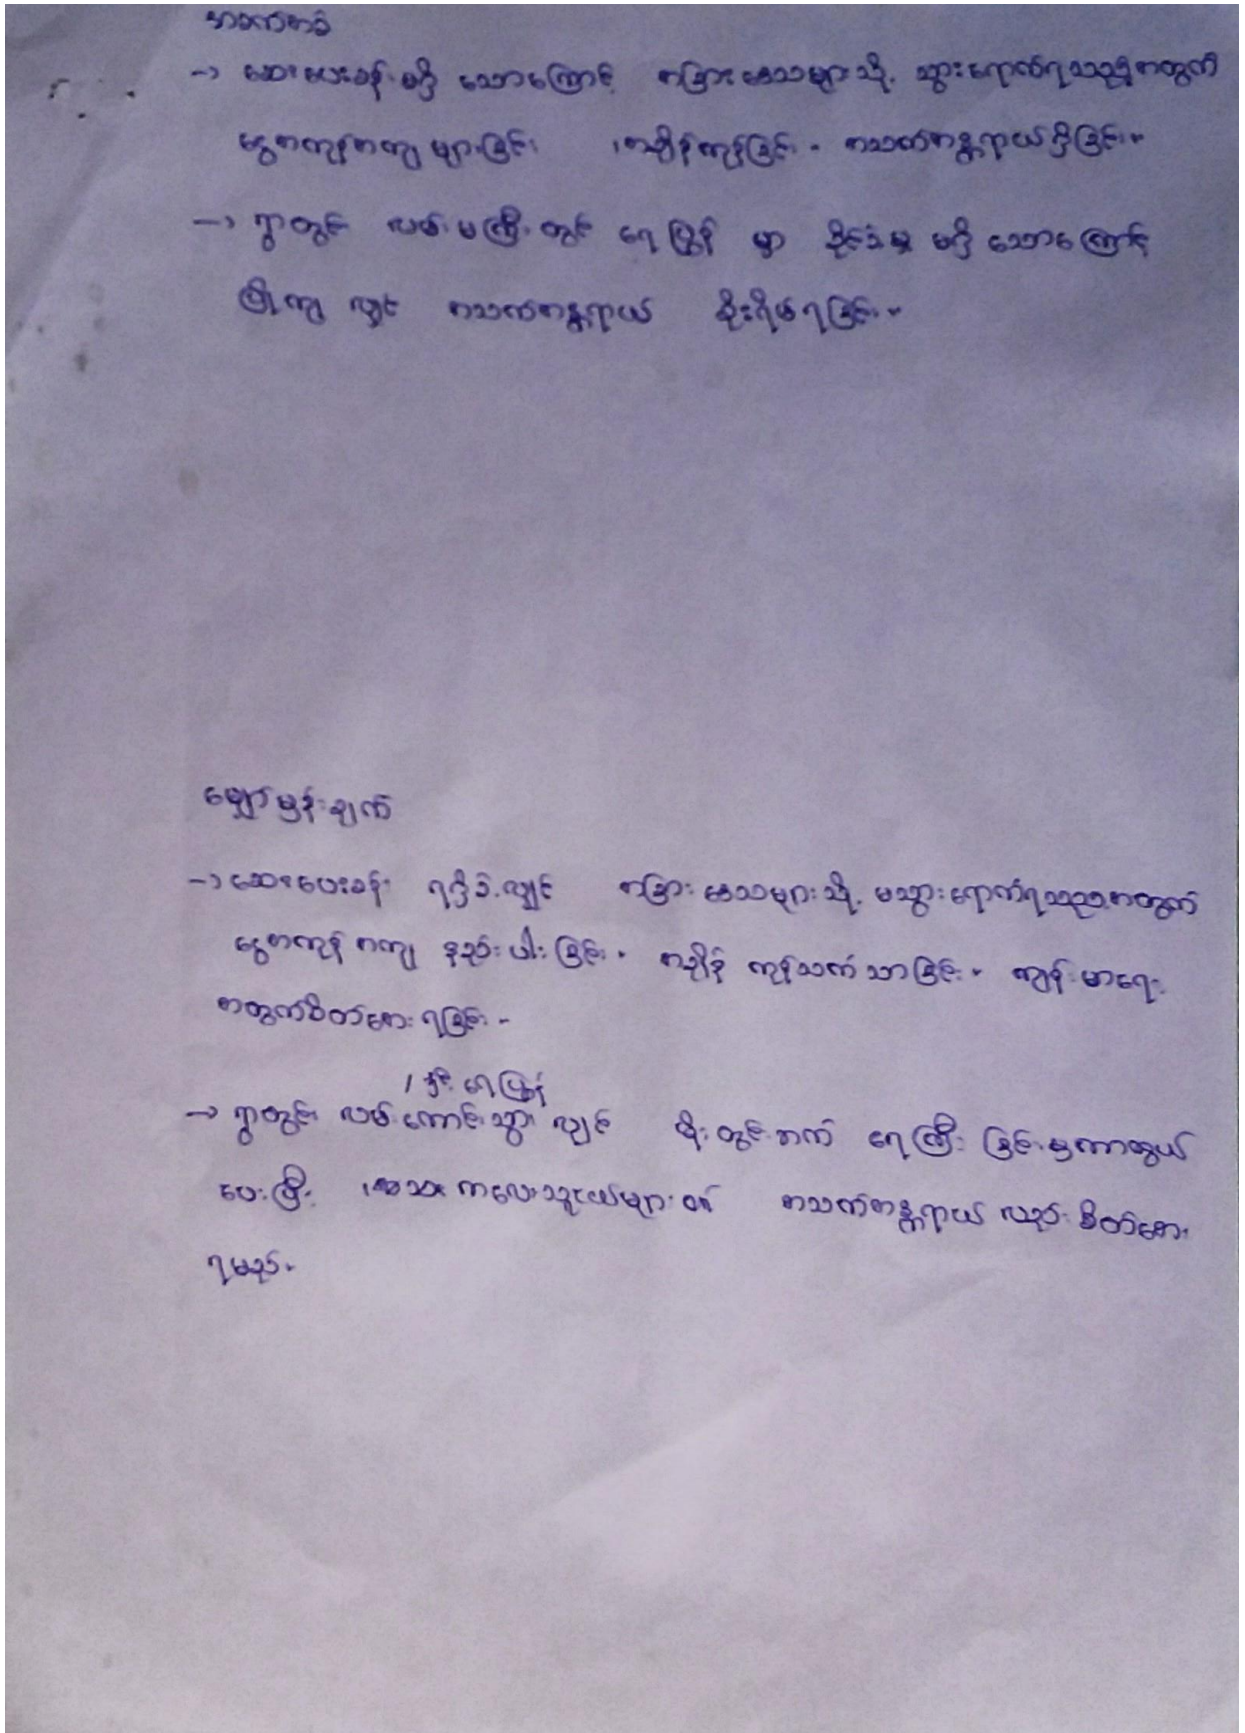 အခက်အခဲ
→ ဆေးပေးခန်း မရှိ သောကြောင့် အခြားဒေသများသို့ သွားရောက်ရသည့်အတွက်
ငွေအကုန်အကျ များခြင်း ၊ အချိန်ကုန်ခြင်း ။ အသက်အန္တရာယ်ရှိခြင်း။
→ ရွာတွင်း လမ်းမကြီးတွင် ရေပြွန် မှာ ခိုင်ခံမှု မရှိ သောကြောင့်
ပြိုကျ လျှင် အသက်အန္တရာယ် စိုးရိမ်ရခြင်း။
မျှော်မှန်းချက်
→ ဆေးပေးခန်း ရရှိခဲ့လျှင် အခြားဒေသများသို့ မသွားရောက်ရသည့်အတွက်
ငွေအကုန်အကျ နည်းပါးခြင်း ။ အချိန် ကုန်သက်သာခြင်း ။ ကျန်းမာရေး
အတွက်စိတ်အေးရခြင်း ။
/ နှင့် ရေပြွန်
→ ရွာတွင်း လမ်းကောင်းသွား လျှင် မိုးတွင်းဘက် ရေကြီး ခြင်းမှကာကွယ်
ပေးပြီး ၊ ကလေးသူငယ်များ ၏ အသက်အန္တရာယ် လည်း စိတ်အေး
ရမည်။